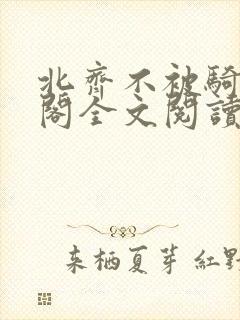 北齊不被騎
閣全文閱讀
来栖夏芽 紅野